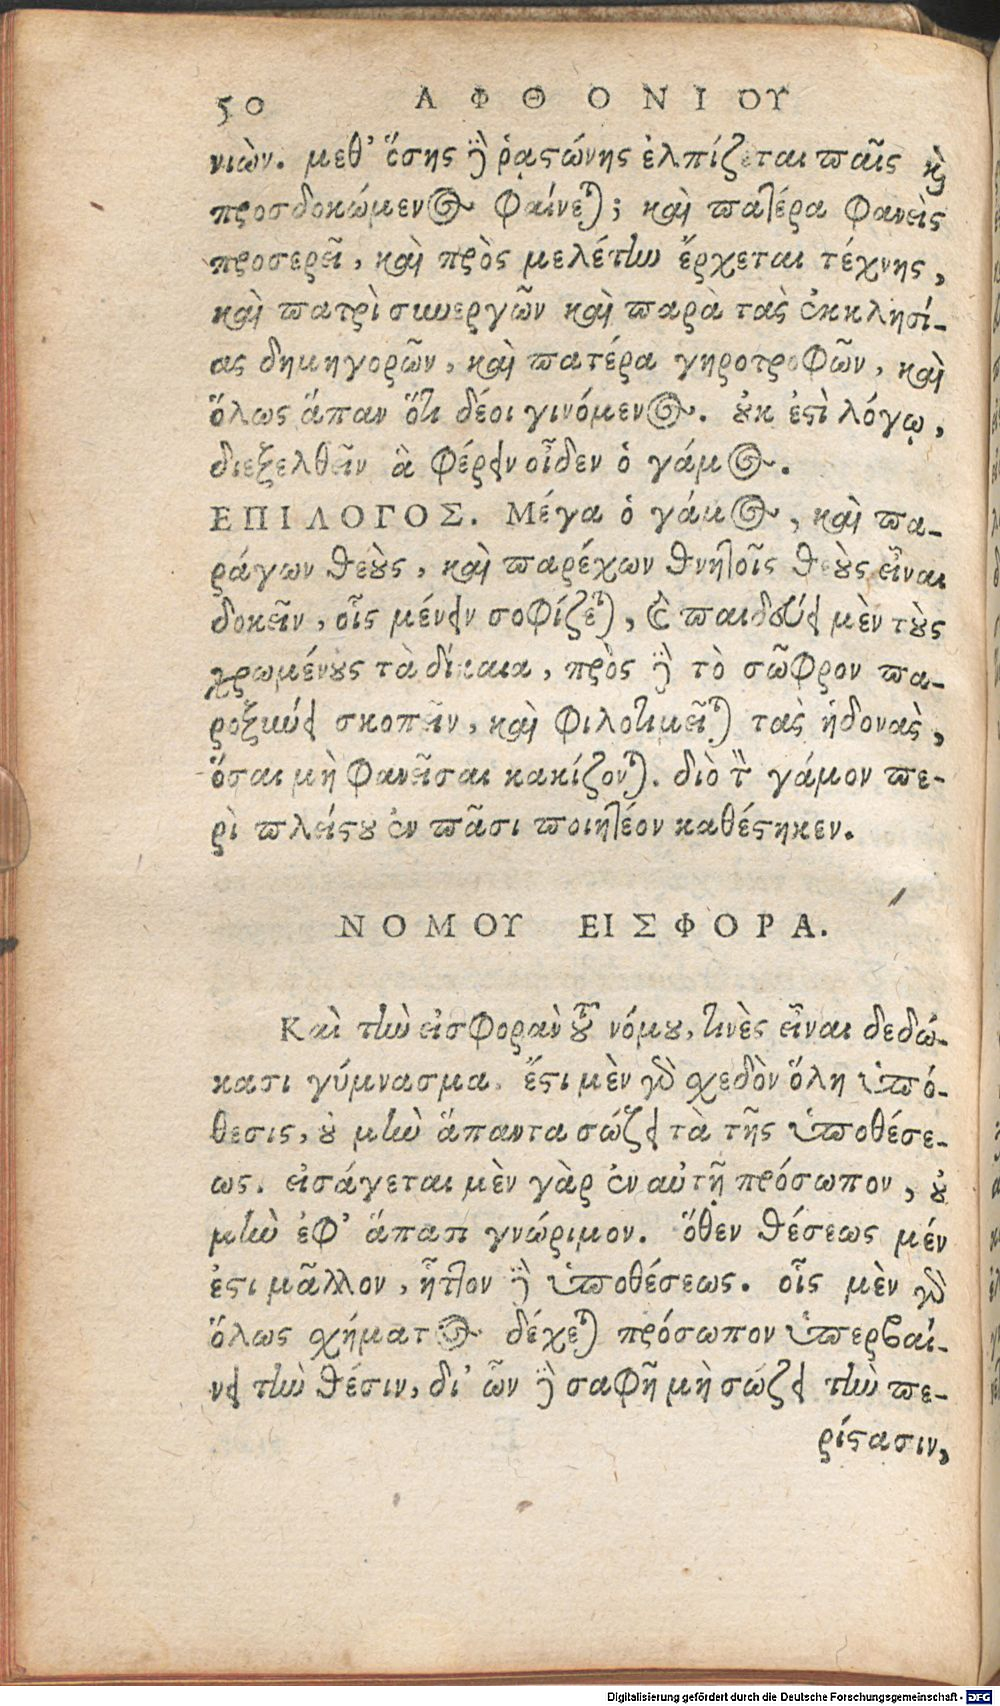 50 ΑΦΘΟΝΙΟΥ
νιῶν. μεθ' ὅσης δὲ ῥᾳστώνης ἐλπίζεται παῖς καὶ
προσδοκώμενος φαίνεται; καὶ πατέρα φανεὶς
προσερεῖ, καὶ πρὸς μελέτην ἔρχεται τέχνης,
καὶ πατρὶ συνεργῶν καὶ παρὰ τὰς ἐκκλησί-
ας δημηγορῶν, καὶ πατέρα γηροτροφῶν, καὶ
ὅλως ἅπαν ὅτι δέοι γινόμενος. οὐκ ἔστι λόγῳ,
διεξελθεῖν ἃ φέρειν οἶδεν ὁ γάμος.
ΕΠΙΛΟΓΟΣ. Μέγα ὁ γάμος, καὶ πα-
ράγων θεοὺς, καὶ παρέχων θνητοῖς θεοὺς εἶναι
δοκεῖν, οἷς μένειν σοφίζεται, καὶ παιδεύει μὲν τοὺς
χρωμένους τὰ δίκαια, πρὸς δὲ τὸ σῶφρον πα-
ροξύνει σκοπεῖν, καὶ φιλοτιμεῖται τὰς ἡδονὰς,
ὅσαι μὴ φανεῖσαι κακίζονται. διὸ τὸν γάμον πε-
ρὶ πλείστου ἐν πᾶσι ποιητέον καθέστηκεν.
ΝΟΜΟΥ ΕΙΣΦΟΡΑ.
Καὶ τὴν εἰσφορὰν τοῦ νόμου, τινὲς εἶναι δεδώ-
κασι γύμνασμα. ἔστι μὲν γὰρ σχεδὸν ὅλη ὑπό-
θεσις, οὐ μὴν ἅπαντα σώζει τὰ τῆς ὑποθέσε-
ως. εἰσάγεται μὲν γὰρ ἐν αὐτῇ πρόσωπον, οὐ
μὴν ἐφ' ἅπασι γνώριμον. ὅθεν θέσεως μέν
ἐστι μᾶλλον, ἧττον δὲ ὑποθέσεως. οἷς μὲν γὰρ
ὅλως σχήματος δέχεται πρόσωπον ὑπερβαί-
νει τὴν θέσιν, δι' ὧν δὲ σαφῆ μὴ σώζει τὴν πε-
ρίστασιν,
Digitalisierung gefördert durch die Deutsche Forschungsgemeinschaft - DFG